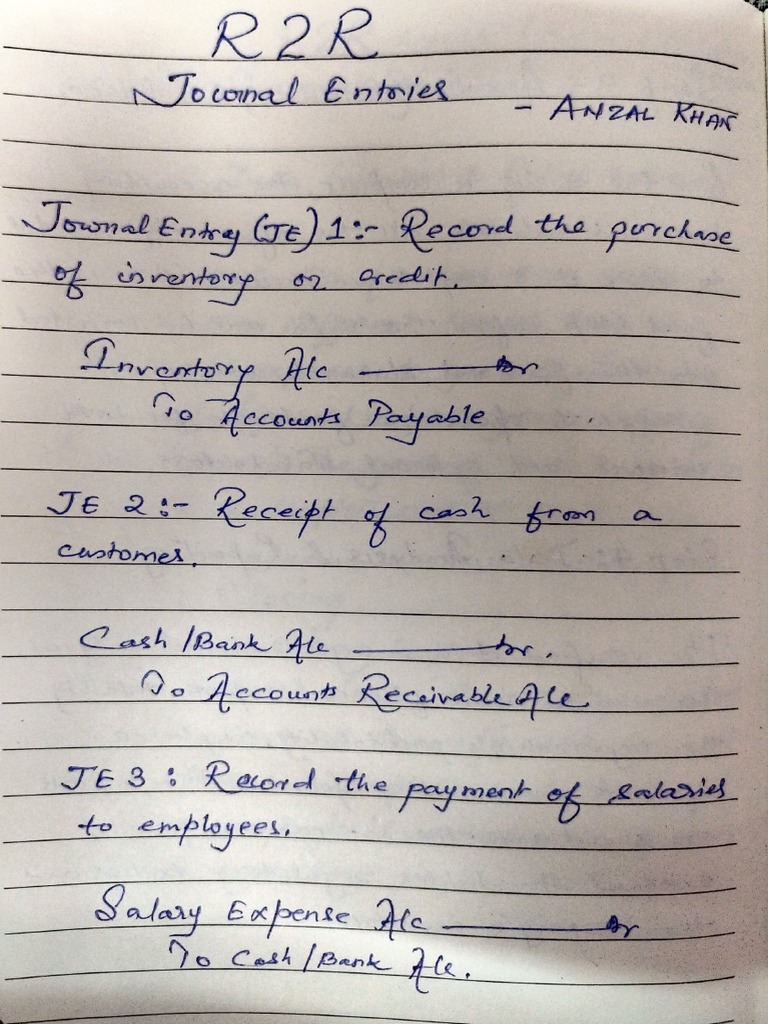 R2R
Journal Entries
- ANZAL KHAN
Journal Entry (JE) 1:- Record the purchase
of inventory on credit.
Inventory A/c ———— Dr
To Accounts Payable
JE 2:- Receipt of cash from a
customer.
Cash/Bank A/c ———— Dr.
To Accounts Receivable A/c.
JE 3: Record the payment of salaries
to employees.
Salary Expense A/c ———— Dr
To Cash/Bank A/c.